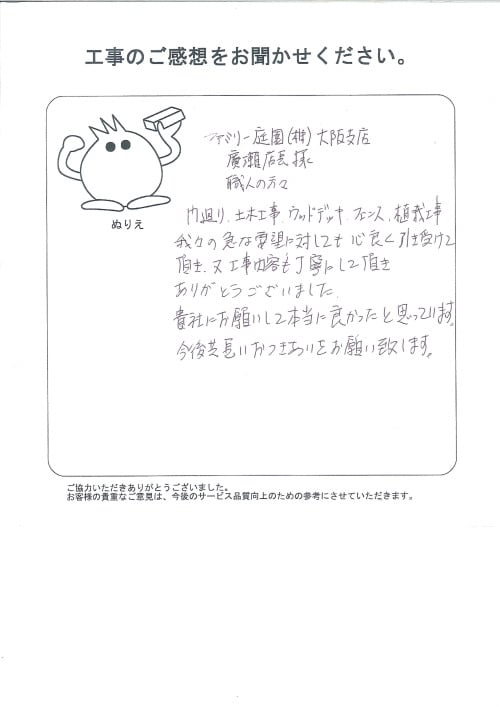 工事のご感想をお聞かせください。
ぬりえ
ファミリー庭園(株)大阪支店
廣瀬店長様
職人の方々
門廻り、土木工事、ウッドデッキ、フェンス、植栽工事
我々の急な要望に対しても心良く引き受けて
頂き、又工事内容も丁寧にして頂き
ありがとうございました。
貴社にお願いして本当に良かったと思っています。
今後共長いおつきあいをお願い致します。
ご協力いただきありがとうございました。
お客様の貴重なご意見は、今後のサービス品質向上のための参考にさせていただきます。